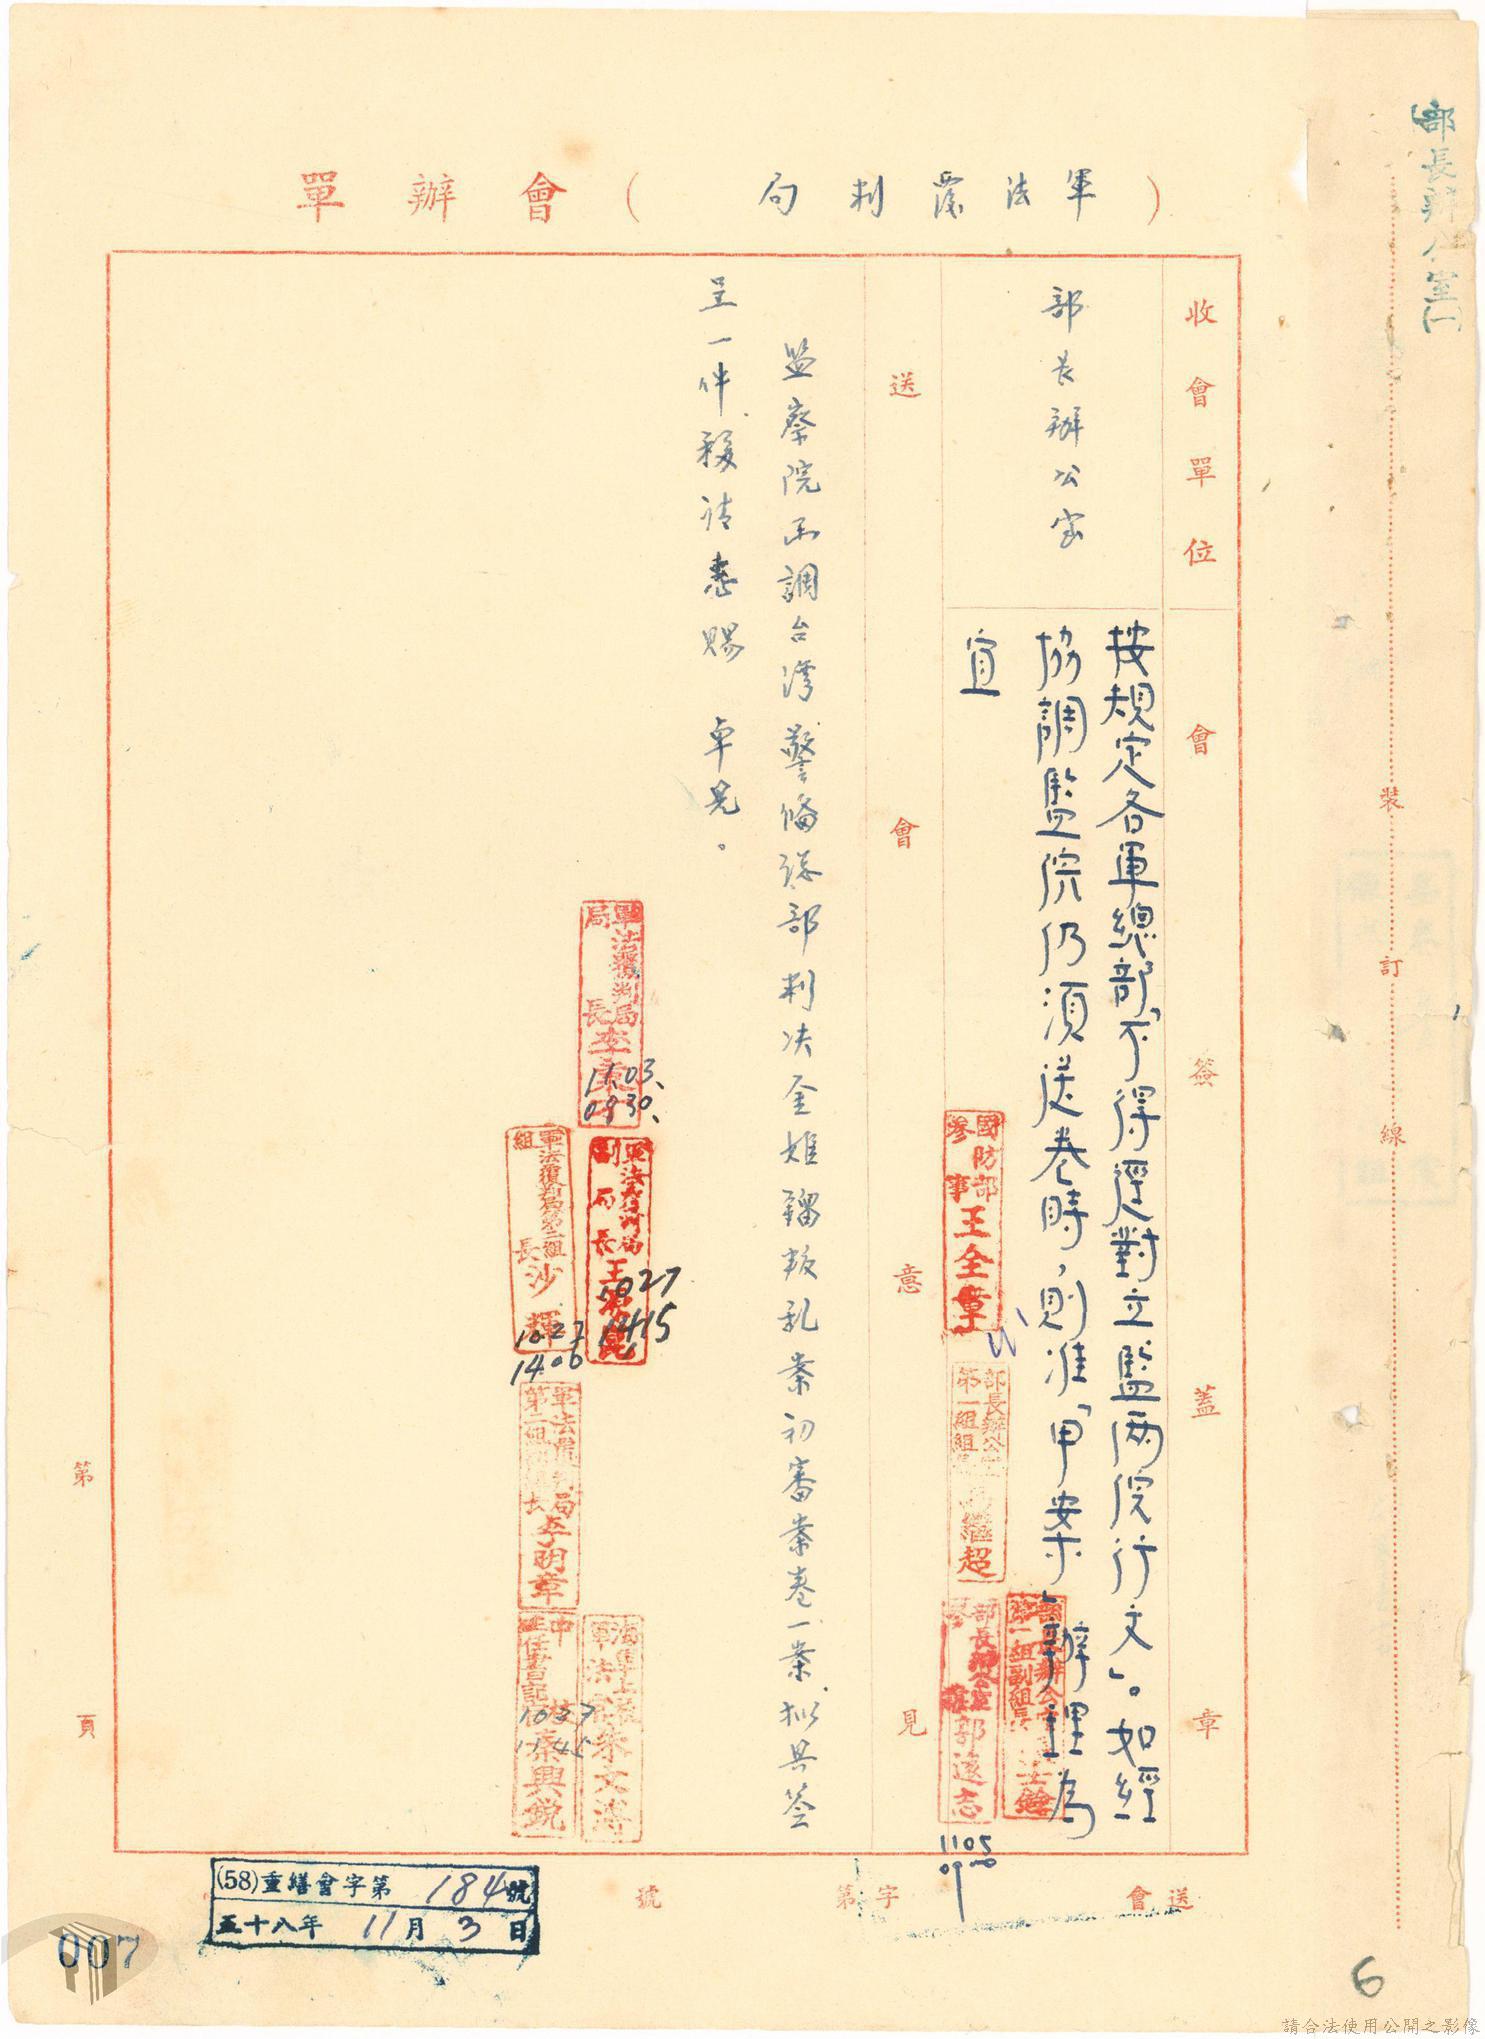 部長辦公室(一)
(軍法覆判局)會辦單
收會單位
會簽蓋章
部長辦公室
按規定各軍總部「不得逕對立監兩院行文」。如經
協調監院仍須送卷時,則准「甲案」辦理為
宜
國防部參事 王全章
部長辦公室第一組組長 繼超
部長辦公室 郭遂志
第一組副組長
1105
0900
送會意見
監察院函調台灣警備總部判決金姬鎦叛乱案初審案卷一案.拟具签
呈一件移請惠賜 卓見。
軍法覆判局局長 李
11.03.
0830.
軍法覆判局副局長 王
1027
1415
軍法覆判局第二組組長 沙輝
1027
1406
軍法覆判局第二組 李明章
軍法官 朱文溥
書記 秦興銳
1027
1145
送會 字第 號
(58)重繕會字第184號
五十八年11月3日
裝訂線
第 頁
007
6
請合法使用公開之影像